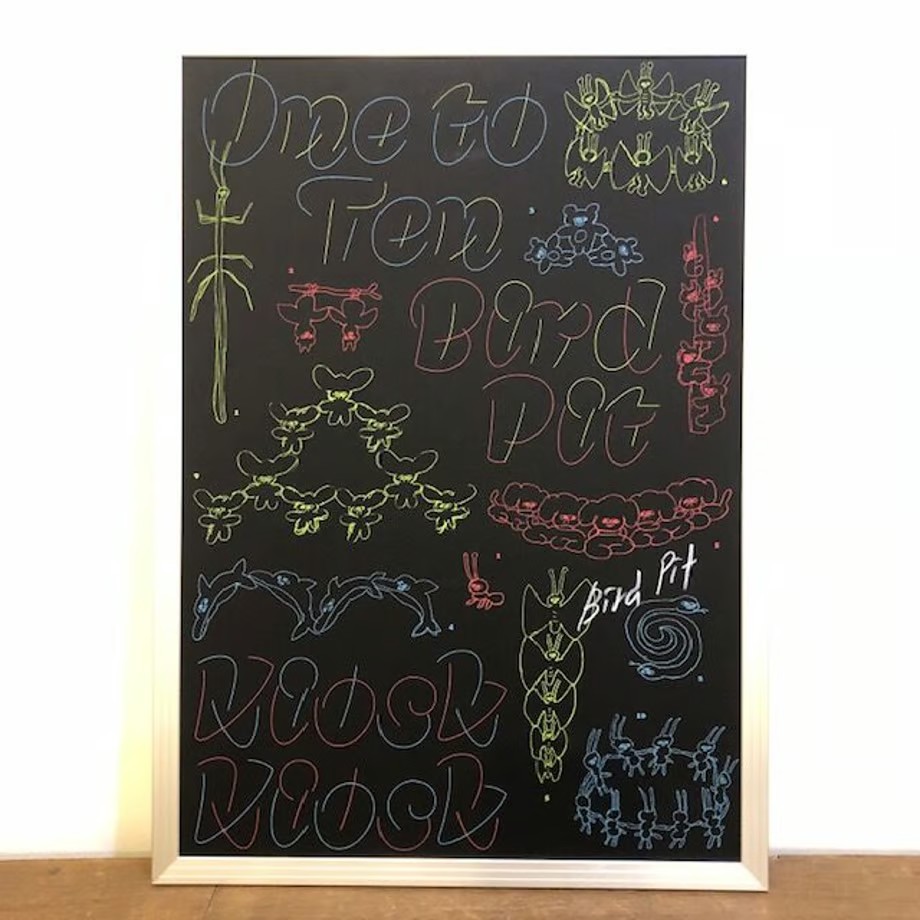 One to
Ten
Bird
Pit
Bird Pit
Kiosk
Kiosk